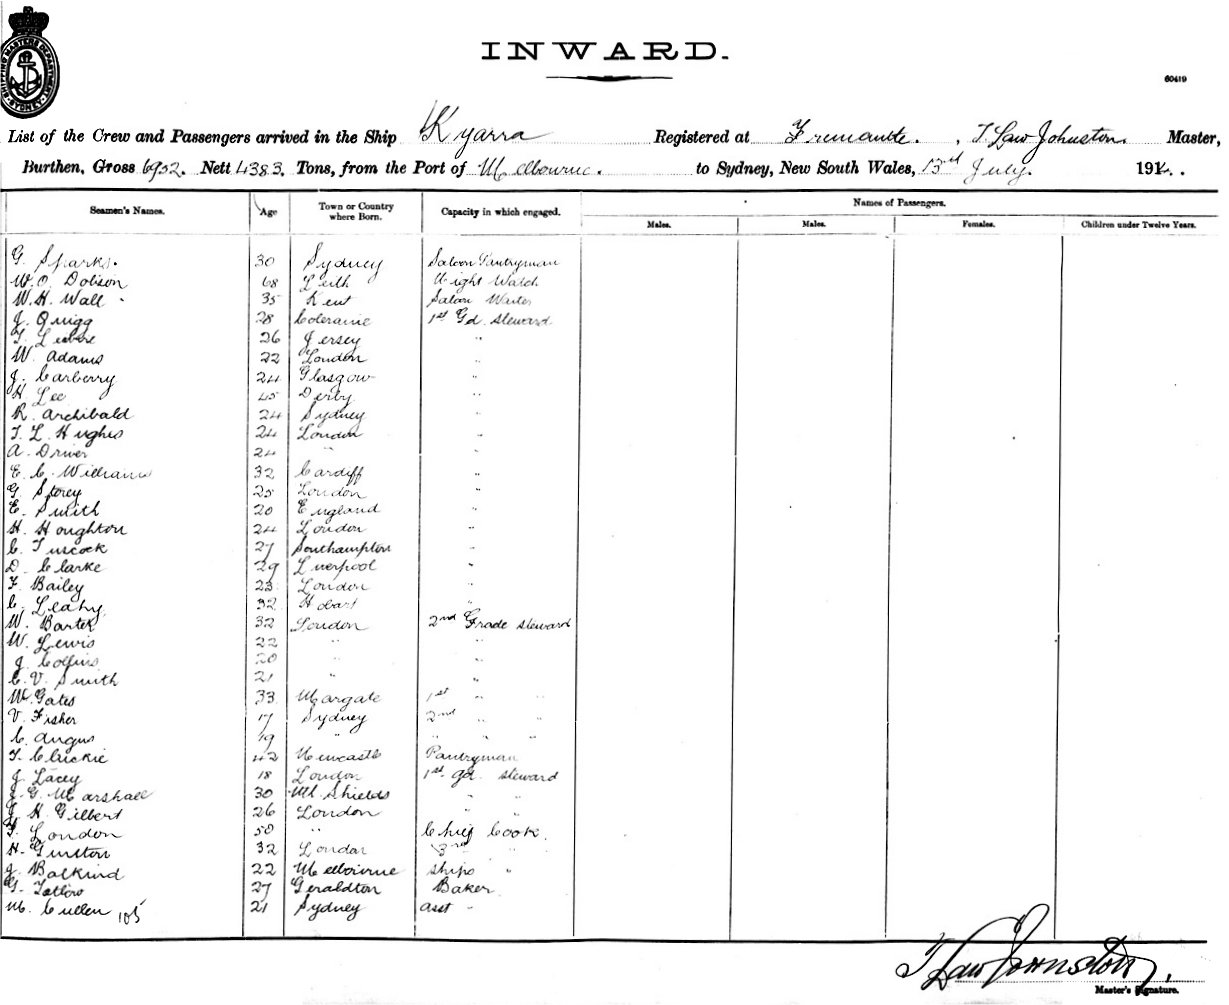 SHIPPING MASTERS DEPARTMENT SYDNEY
INWARD.
60419
List of the Crew and Passengers arrived in the Ship Kyarra Registered at Fremantle. , T. Law Johnston. Master,
Burthen, Gross 6952. Nett 4383. Tons, from the Port of Melbourne. to Sydney, New South Wales, 13rd July. 191
Seamen's Names. Age Town or Country where Born. Capacity in which engaged. Names of Passengers.
Males. Males. Females. Children under Twelve Years.
G. Sparks. 30 Sydney Saloon Pantryman
W. O. Dobson 68 Leith Night Watch
W. H. Wall 35 Kent Saloon Waiter
J. Quigg 28 Coleraine 1st Gd. Steward
26 Jersey "
W. Adams 22 London "
J. Carberry 24 Glasgow "
H. Lee 45 Derby "
R. Archibald 24 Sydney "
T. L. Hughes 24 London "
A. Driver 24 " "
E. C. Williams 32 Cardiff "
G. Storey 25 London "
E. Smith 20 England "
H. Houghton 24 London "
C. Tuscock 27 Southampton "
D. Clarke 29 Liverpool "
F. Bailey 23 London "
C. Leahy 32 Hobart "
W. Bartek 32 London 2nd Grade Steward
W. Lewis 22 " "
J. Collins 20 " "
C. V. Smith 21 " "
W. Gates 33 Margate 1st " "
V. Fisher 17 Sydney 2nd " "
C. Angus 19 " " " "
T. Cluckie 42 Newcastle Pantryman
J. Lacey 18 London 1st gd. Steward
J. G. Marshall 30 Nth Shields " "
J. H. Gilbert 26 London " "
F. London 50 " Chief Cook.
H. Gunton 32 London 3rd "
J. Balkind 22 Melbourne Ships "
G. Tatlow 27 Geraldton Baker
M. Cullen 105 21 Sydney asst "
T. Law Johnston.
Master's Signature.